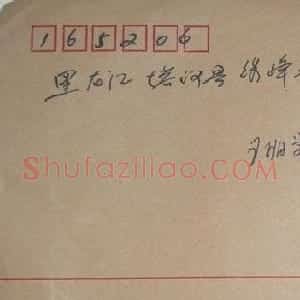 165206
黑龙江 塔河县 绣峰
Shufaziliao.com